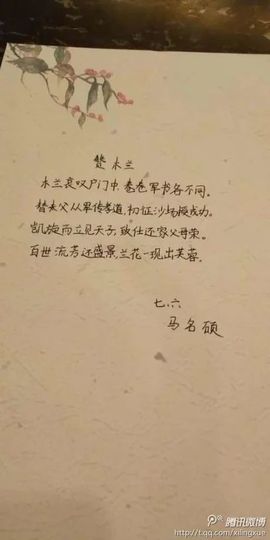 赞木兰
木兰哀叹户门中,卷卷军书各不同。
替夫父从军传孝道,初征沙场授成功。
凯旋而立见天子,致仕还家父母荣。
百世流芳还盛景,兰花一现出芙蓉。
七.六
马名硕
腾讯微博
http://t.qq.com/xilingxue